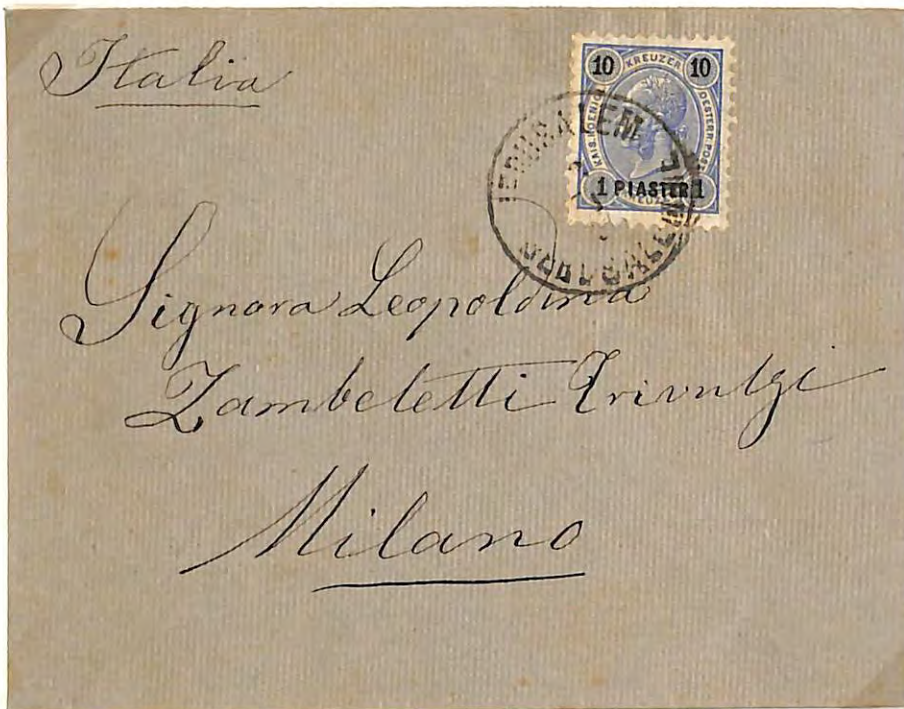 Italia
10 KREUZER 10
KAIS. KOENIGL. OESTERR. POST
1 PIASTER 1
JERUSALEM
Signora Leopoldina
Zambeletti Trivulzi
Milano